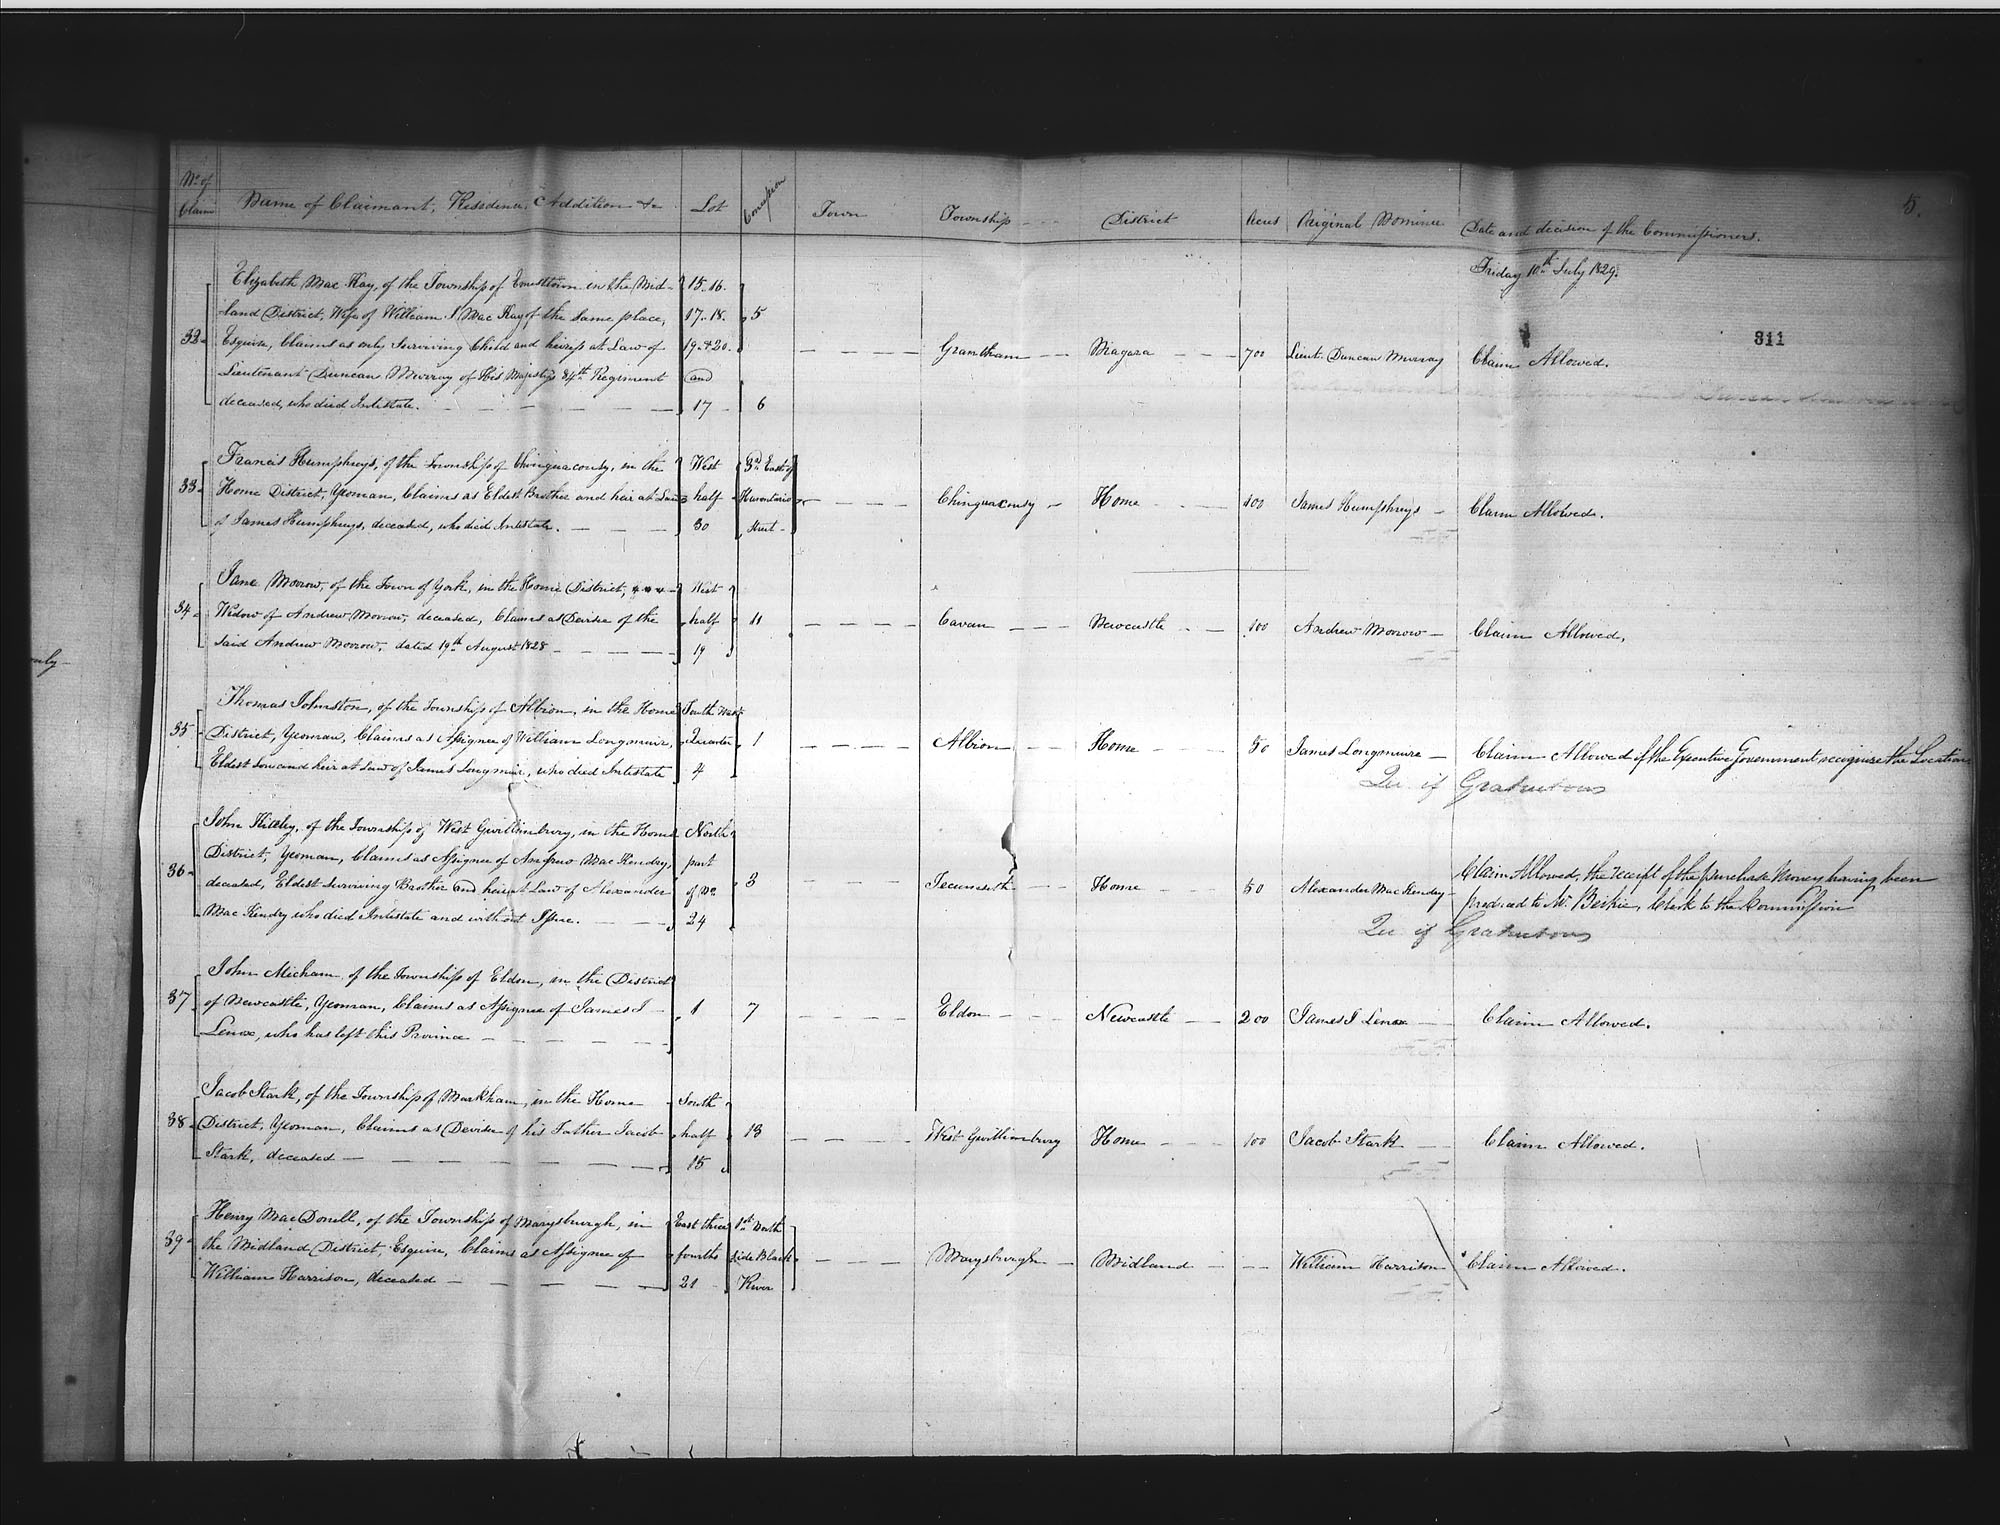 5.
No. of Claim | Name of Claimant, Residence, Addition &c | Lot | Concession | Town | Township | District | Acres | Original Nominee | Date and decision of the Commissioners.
Friday 10th July 1829.
311
32 Elizabeth Mac Kay, of the Township of Ernesttown in the Mid- | 15.. 16.
land District, Wife of William I Mac Kay of the same place, | 17.. 18. | 5
Esquire, Claims as only surviving Child and heiress at Law of | 19 & 20. | Grantham | Niagara | 700 | Lieut. Duncan Murray | Claim Allowed.
Lieutenant Duncan Murray of His Majesty's 84th Regiment | and
deceased, who died Intestate. | 17 | 6
33 Francis Humphreys, of the Township of Chinguacousy, in the | West | 3rd East of
Home District, Yeoman, Claims as Eldest Brother and heir at Law | half | Hurontario | Chinguacousy | Home | 100 | James Humphreys | Claim Allowed.
of James Humphreys, deceased, who died Intestate. | 30 | Street
34 Jane Morrow, of the Town of York, in the Home District, | West
Widow of Andrew Morrow, deceased, Claims as Devisee of the | half | 11 | Cavan | Newcastle | 100 | Andrew Morrow | Claim Allowed,
said Andrew Morrow, dated 19th August 1828 | 19
35 Thomas Johnston, of the Township of Albion, in the Home | South West
District, Yeoman, Claims as Assignee of William Longmuir, | Quarter | 1 | Albion | Home | 50 | James Longmuire | Claim Allowed if the Executive Government recognize the Location
Eldest Son and heir at Law of James Longmuir, who died Intestate | 4
Qu. if Gratuitous
36 John Kitely, of the Township of West Gwillimbury, in the Home | North
District, Yeoman, Claims as Assignee of Andrew Mac Kendry, | part
deceased, Eldest surviving Brother and heir at Law of Alexander | of No | 3 | Tecumseth | Home | 50 | Alexander Mac Kendry | Claim Allowed, the receipt of the purchase Money having been
Mac Kendry who died Intestate and without Issue. | 24 | produced to Mr. Beikie, Clerk to the Commission
Qu. if Gratuitous
37 John Micham, of the Township of Eldon, in the District
of Newcastle, Yeoman, Claims as Assignee of James I | 1 | 7 | Eldon | Newcastle | 200 | James I Lenox | Claim Allowed.
Lenox, who has left this Province
38 Jacob Stark, of the Township of Markham, in the Home | South
District, Yeoman, Claims as Devisee of his Father Jacob | half | 13 | West Gwillimbury | Home | 100 | Jacob Stark | Claim Allowed.
Stark, deceased | 15
39 Henry MacDonell, of the Township of Marysburgh, in | East three | 1st North
the Midland District, Esquire, Claims as Assignee of | fourths | side Black | Marysburgh | Midland | William Harrison | Claim Allowed.
William Harrison, deceased | 21 | River